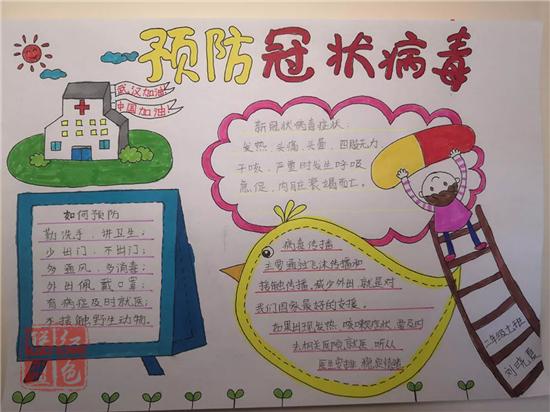 预防冠状病毒
武汉加油
中国加油
新冠状病毒症状:
发热、头痛、头晕、四肢无力、
干咳、严重时发生呼吸
急促、内脏衰竭而亡。
如何预防
勤洗手、讲卫生;
少出门、不出门;
多通风、多消毒;
外出佩戴口罩;
有病症及时就医;
不接触野生动物。
病毒传播
主要通过飞沫传播和
接触传播,减少外出就是对
我们国家最好的支援。
如果出现发热 咳嗽症状 要及时
去相关医院就医 听从
医生安排 稳定情绪
二年级七班
刘晓
红色